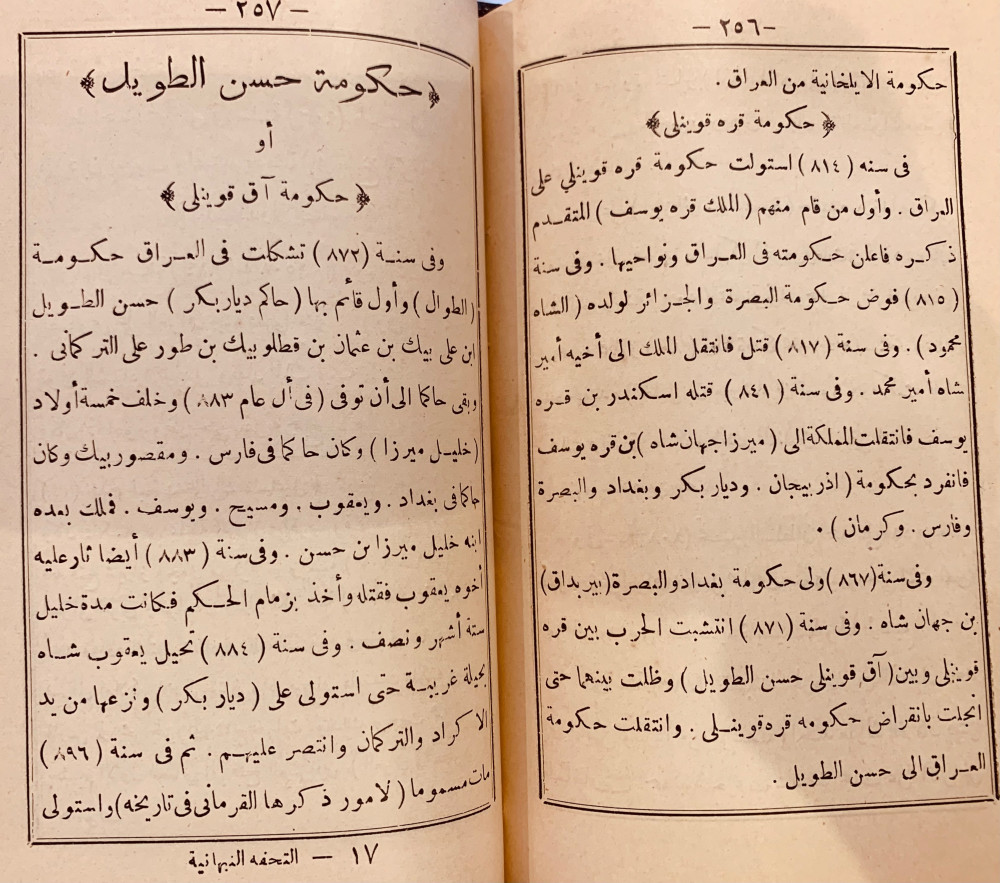 -٢٥٦ -
حكومة الايلخانية من العراق .
﴿ حكومة قره قوينلى ﴾
فى سنه ( ٨١٤ ) استولت حكومة قره قوينلي على
العراق . وأول من قام منهم ( الملك قره يوسف ) المتقدم
ذكره فاعلن حكومته فى العراق ونواحيها . وفى سنة
( ٨١٥ ) فوض حكومة البصرة والجزائر لولده ( الشاه
محمود ) . وفى سنة ( ٨١٧ ) قتل فانتقل الملك الى أخيه أمير
شاه أمير محمد . وفى سنة ( ٨٤١ ) قتله اسكندر بن قره
يوسف فانتقلت المملكة الى ( ميرزا جهان شاه ) بن قره يوسف
فانفرد بحكومة ( اذربيجان . وديار بكر وبغداد والبصرة
وفارس . وكرمان ) .
وفى سنة ( ٨٦٧ ) ولى حكومة بغداد والبصرة ( بير بداق )
بن جهان شاه . وفى سنة ( ٨٧١ ) انتشبت الحرب بين قره
قوينلى وبين ( آق قوينلى حسن الطويل ) وظلت بينهما حتى
انجلت بانقراض حكومه قره قوينلى . وانتقلت حكومة
العراق الى حسن الطويل .
- ٢٥٧ -
﴿ حكومة حسن الطويل ﴾
أو
﴿ حكومة آق قوينلى ﴾
وفى سنة ( ٨٧٢ ) تشكلت فى العراق حكومة
( الطوال ) وأول قائم بها ( حاكم ديار بكر ) حسن الطويل
ابن على بيك بن عثمان بن قطلو بيك بن طور على التركمانى .
وبقى حاكما الى أن توفى ( فى أل عام ٨٨٣ ) وخلف خمسة أولاد
( خليل ميرزا ) وكان حاكما فى فارس . ومقصور بيك وكان
حاكما فى بغداد . ويعقوب . ومسيح . ويوسف . فملك بعده
ابنه خليل ميرزا بن حسن . وفى سنة ( ٨٨٣ ) أيضا ثار عليه
أخوه يعقوب فقتله وأخذ بزمام الحكم فكانت مدة خليل
ستة أشهر ونصف . وفى سنة ( ٨٨٤ ) تحيل يعقوب شاه
بحيلة غريبة حتى استولى على ( ديار بكر ) ونزعها من يد
الاكراد والتركمان وانتصر عليهم . ثم فى سنة ( ٨٩٦ )
مات مسموما ( لامور ذكرها القرمانى فى تاريخه ) واستولى
١٧ - التحفه النبهانية